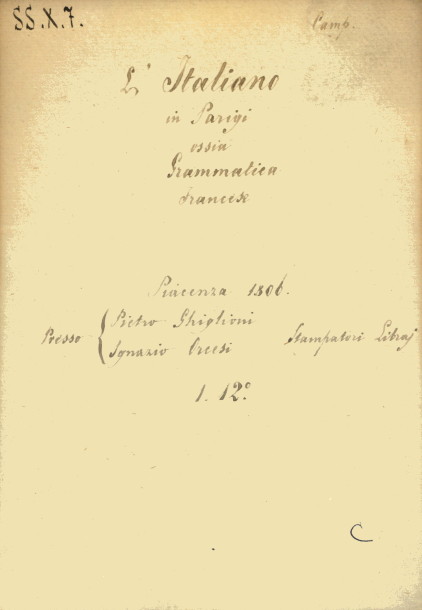 SS.X.7.
Camp.
L' Italiano
in Parigi
ossia
Grammatica
francese
Piacenza 1806.
Presso { Pietro Ghiglioni
Ignazio Orcesi
Stampatori Libraj
1. 12.°
C